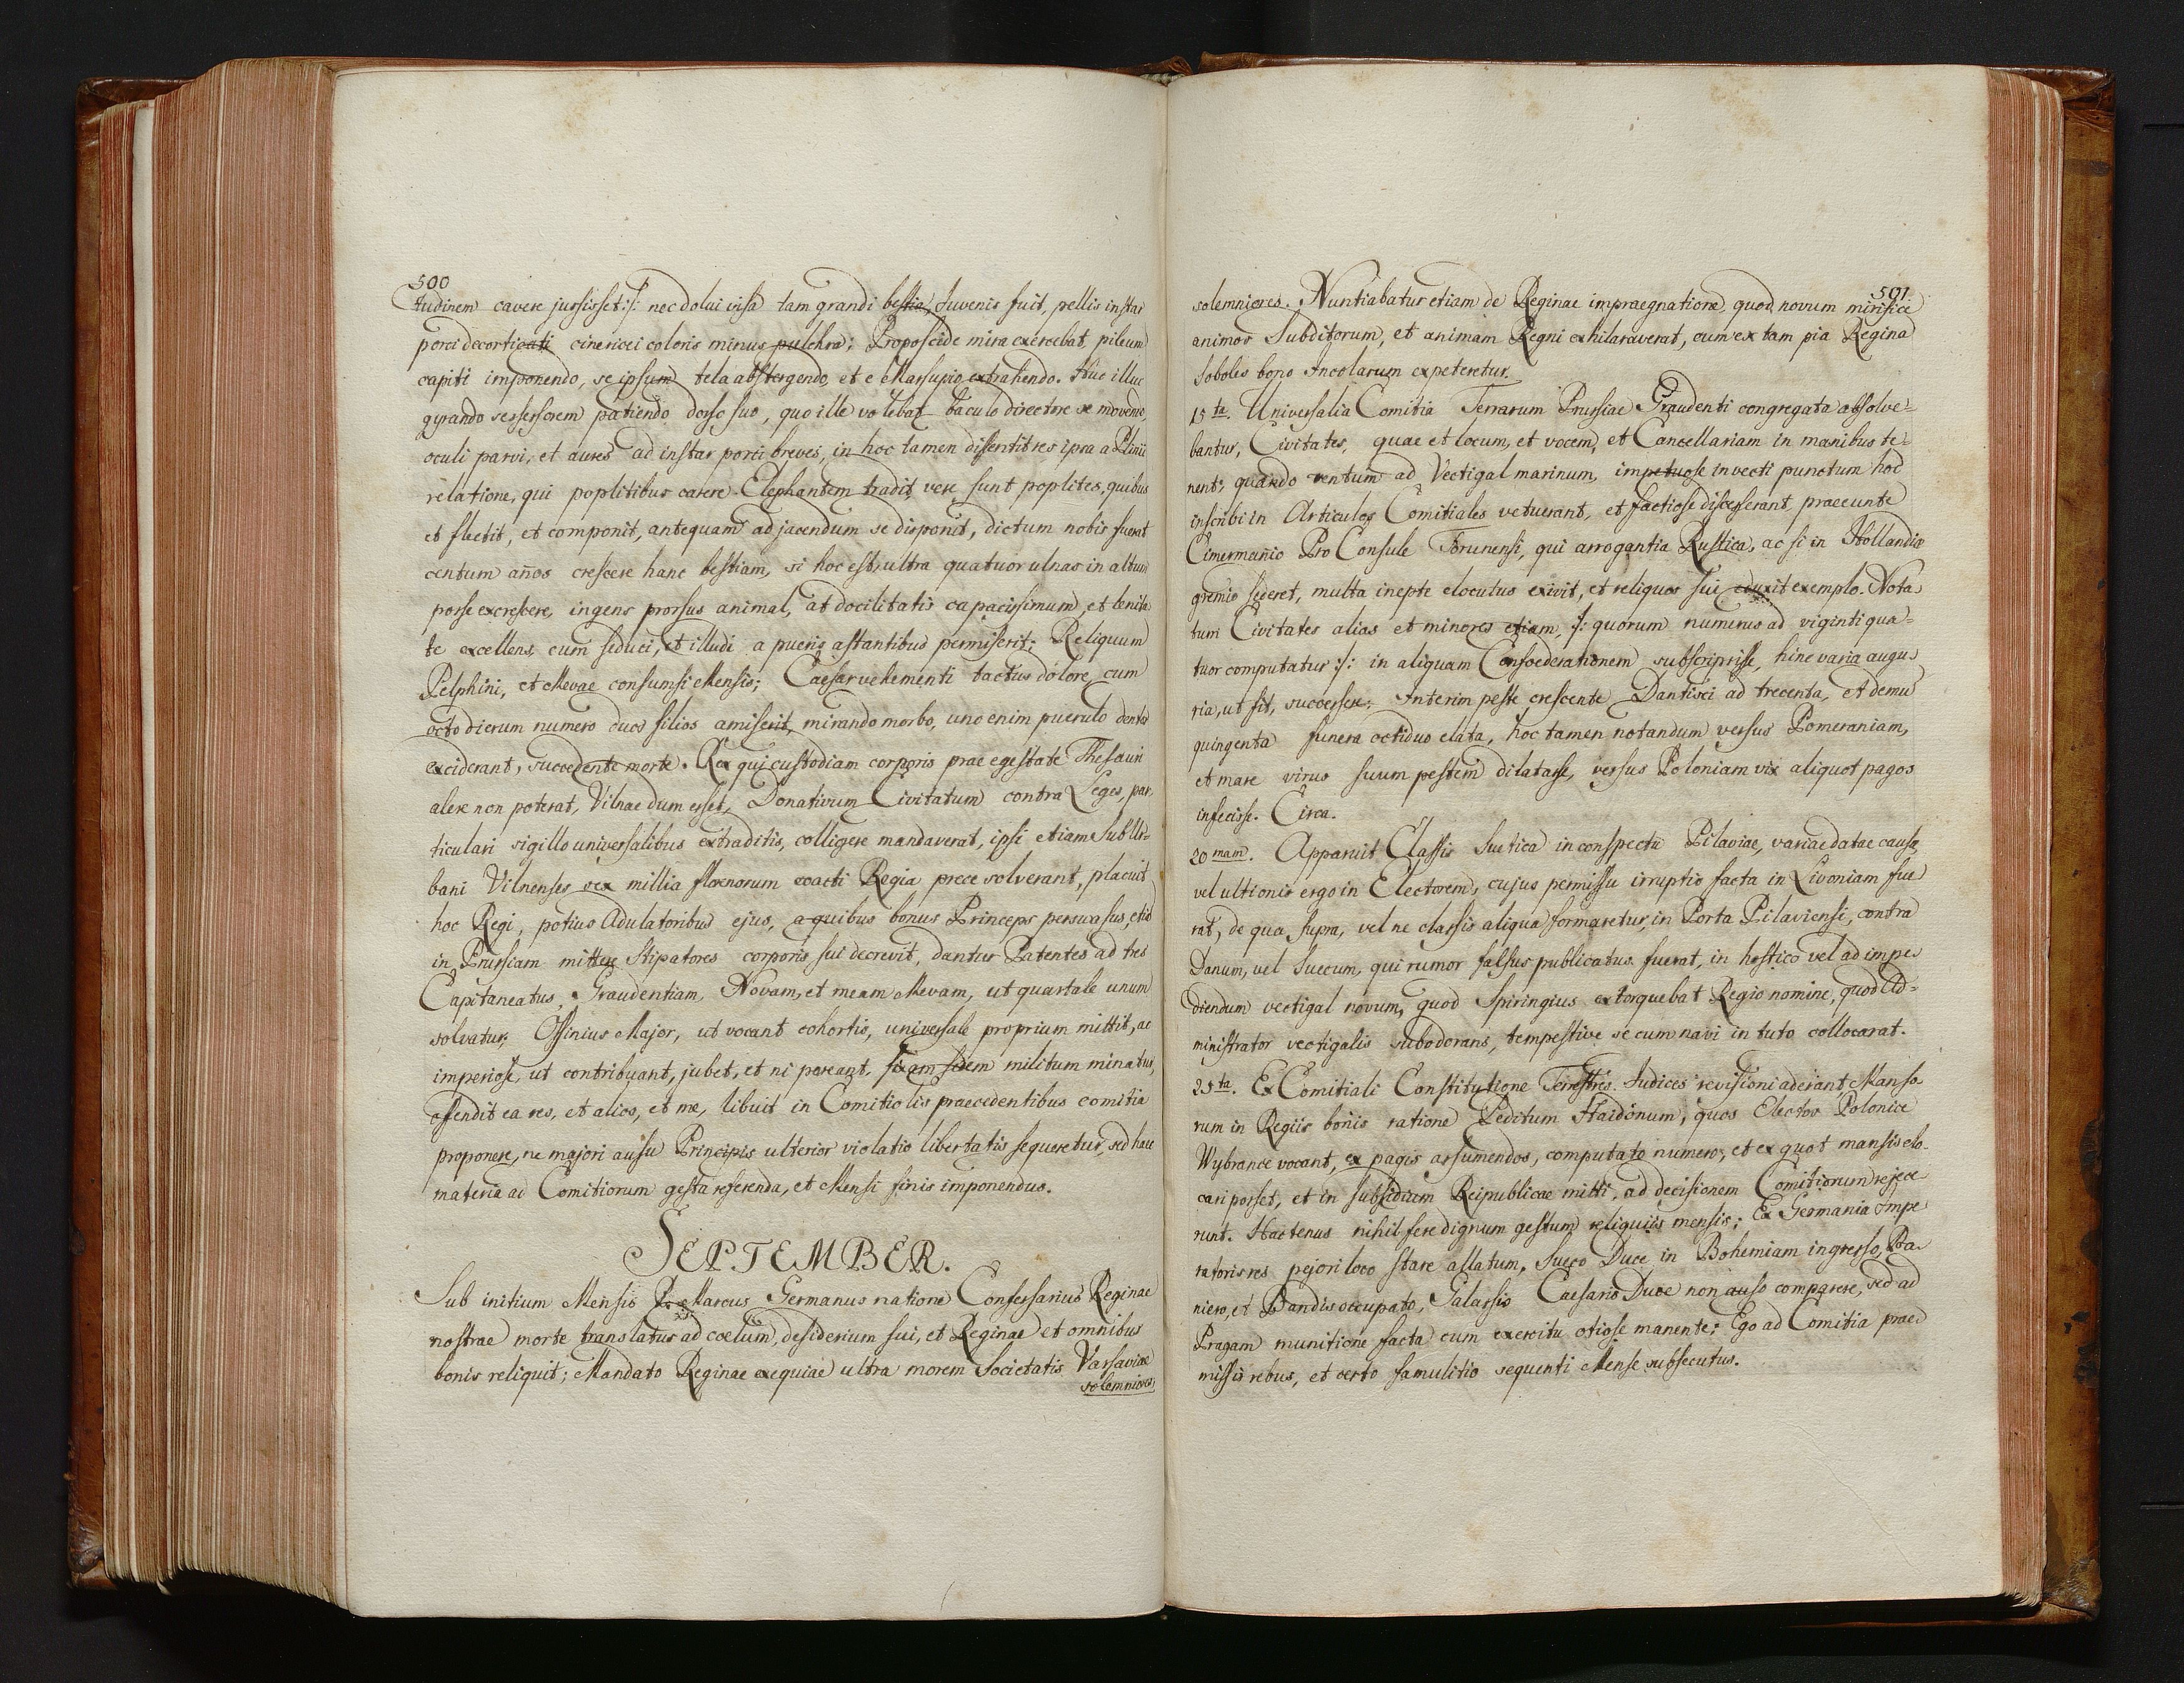 500
tudinem cavere jussisset :/: nec dolui visa tam grandi bestia, Juvenis fuit, pellis instar
porci decorticati cinericei coloris minus pulchra; Proposcide mira exercebat, pileum
capiti imponendo, se ipsum tela abstergendo, et e Marsupio extrahendo. Huc illuc
gyrando sessorem patiendo dorso suo, quo ille volebat baculo directore se movendo,
oculi parvi, et aures ad instar porci breves, in hoc tamen dissentit res ipsa a Plinii
relatione, qui poplitibus carere Elephantem tradit, vere sunt poplites, quibus
et flectit, et componit, antequam ad jacendum se disponit, dictum nobis fuerat
centum años crescere hanc bestiam, si hoc est, ultra quatuor ulnas in altum
posse excrescere, ingens prorsus animal, at docilitatis capacissimum, et lenita
te excellens, cum seduci, et illudi a pueris astantibus permiserit; Reliquum
Pelphini, et Mevae consumsi Mensis; Caesar vehementi tactus dolore, cum
octo dierum numero duos filios amiserit, mirando morbo, uno enim puerulo dentes
exciderant, succedente morte. Rex qui custodiam corporis prae egestate Thesauri
alere non poterat, Vilnae dum esset, Donativum Civitatum contra Leges, par,
ticulari sigillo universalibus extraditis, colligere mandaverat, ipsi etiam Sub Ur-
bani Vilnenses sex millia florenorum coacti Regia prece solverant, placuit
hoc Regi, potius Adulatoribus ejus, a quibus bonus Princeps persuasus, etiã
in Prussiam mittere Stipatores corporis sui decrevit, dantur Patentes ad tres
Capitaneatus Graudentiam, Novam, et meam Mevam, ut quartale unum
solvatur; Ossinius Major, ut vocant cohortis, universale proprium mittit, ac
imperiose, ut contribuant, jubet, et ni pareant, fixam sedem militum minatur,
offendit ea res, et alios, et me, libuit in Comitiolis praecedentibus comitia
proponere, ne majori ausu Principis ulterior violatio libertatis sequeretur, sed haec
materia ad Comitiorum gesta referenda, et Mensi finis imponendus.
SEPTEMBER.
Sub initium Mensis Pr Marcus Germanus natione Confessarius Reginae
nostrae morte translatus ad coelum, desiderium sui, et Reginae et omnibus
bonis reliquit; Mandato Reginae exequiae ultra morem Societatis Varsaviae
solemniores
501
solemniores. Nuntiabatur etiam de Reginae impraegnatione, quod novum mirifice
animos Subditorum, et animam Regni exhilaraverat, cum ex tam pia Regina
Soboles bono Incolarum expeteretur.
15ta. Universalia Comitia Terrarum Prussiae Graudenti congregata absolve-
bantur, Civitates, quae et locum, et vocem, et Cancellariam in manibus te-
nent, quando ventum ad Vectigal marinum, impetuose invecti punctum hoc
inscribi in Articulos Comitiales vetuerant, et factiose discesserant, praeeunte
Cimermanio Pro Consule Torunensi, qui arrogantia Rustica, ac si in Hollandiæ
gremio sederet, multa inepte eloculus exivit, et reliquos sui eduxit exemplo. Nota
tum Civitates alias et minores etiam, :/: quorum numerus ad viginti qua-
tuor computatur :/: in aliquam Confoederationem subscripsisse, hinc varia augu,
ria, ut fit, successere; Interim peste crescente Dantisci ad trecenta, et demũ
quingenta funera octiduo elata, hoc tamen notandum versus Pomeraniam,
et mare virus suum pestem dilatasse, versus Poloniam vix aliquot pagos
infecisse. Circa.
20mam. Apparuit Classis Suetica in conspectu Pilaviae, variae datae causæ,
vel ultionis ergo in Electorem, cujus permissu irruptio facta in Livoniam fue
rat, de qua supra, vel ne classis aliqua formaretur, in Porta Pilaviensi, contra
Danum, vel Suecum, qui rumor falsus publicatus fuerat, in hostico vel ad impe,
diendum vectigal novum, quod Spiringius extorquebat Regio nomine, quod Ad-
ministrator vectigalis subodorans, tempestive se cum navi in tuto collocarat.
25ta. Ex Comitiali Constitutione Terrestres Judices revisioni aderant, Manso
rum in Regiis bonis ratione Peditum Haidonum, quos Elector Polonice
Wybrance vocant, ex pagis assumendos, computato numero, et ex quot mansis elo-
cari posset, et in subsidium Reipublicae mitti, ad decisionem Comitiorum rejece
runt. Hactenus nihil fere dignum gestum reliquiis mensis; Ex Germania Impe
ratoris res pejori loco stare allatum, Sueco Duce in Bohemiam ingresso, Ba
niero, et Bandis occupato, Galassio Caesaris Duce non auso comparere, sed ad
Pragam munitione facta cum exercitu otiose manente; Ego ad Comitia prae
missis rebus, et certo famulitio sequenti Mense subsecutus.